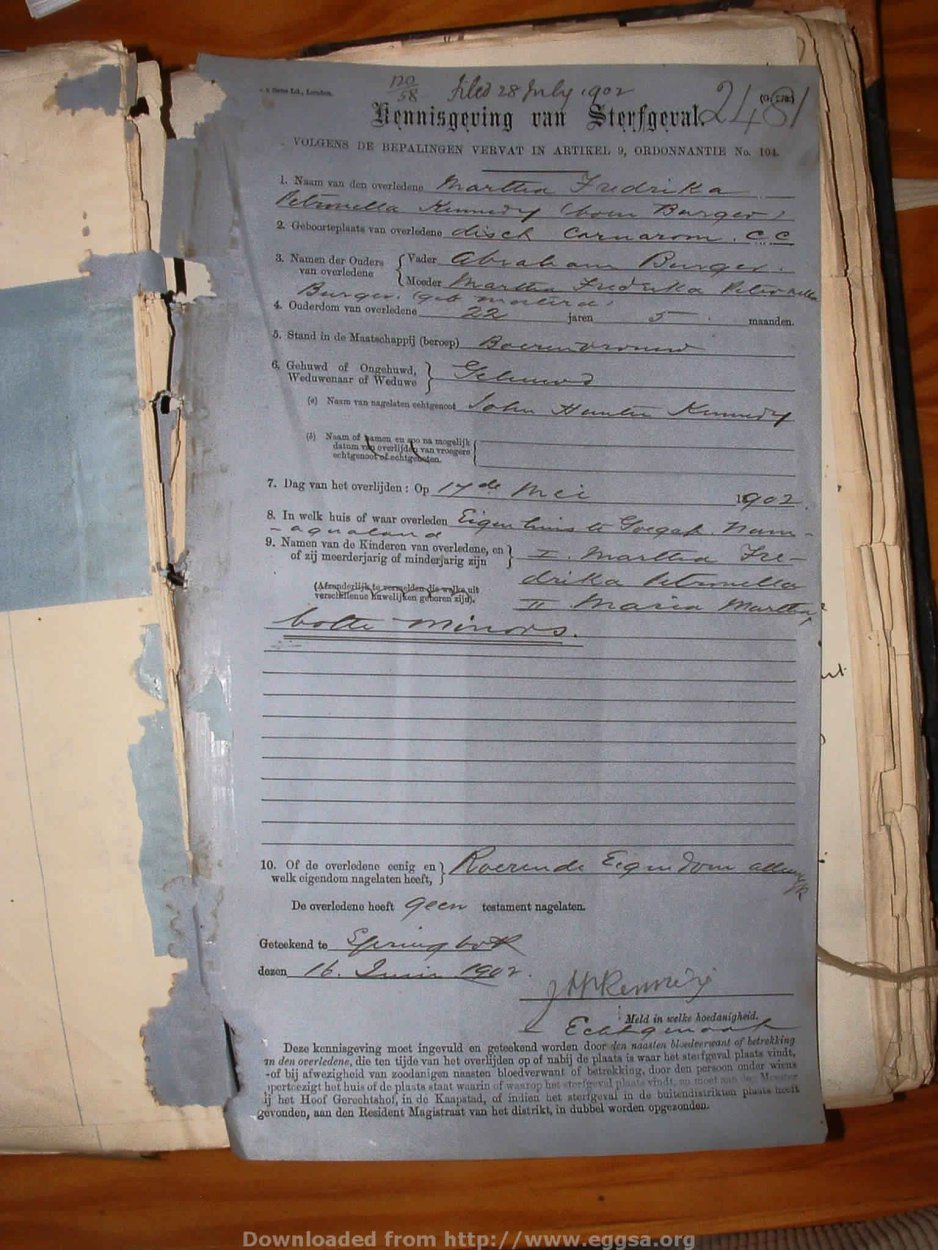 & Sons Ld., London.
no/58 filed 28 July 1902
2481
(G. 178)
Kennisgeving van Sterfgeval.
VOLGENS DE BEPALINGEN VERVAT IN ARTIKEL 9, ORDONNANTIE No. 104.
1. Naam van den overledene Martha Fredrika
Petronella Kennedy (born Burger)
2. Geboorteplaats van overledene disch Carnarvon. C C
3. Namen der Ouders van overledene { Vader Abraham Burger.
Moeder Martha Fredrika Petronella
Burger. (geb
4. Ouderdom van overledene 22 jaren 5 maanden.
5. Stand in de Maatschappij (beroep) Boerenvrouw
6. Gehuwd of Ongehuwd, Weduwenaar of Weduwe } Gehuwd
(a) Naam van nagelaten echtgenoot John Hunter Kennedy
(b) Naam of namen en zoo na mogelijk
datum van overlijden van vroegere
echtgenoot of echtgenoten.
7. Dag van het overlijden: Op 17de Mei 1902
8. In welk huis of waar overleden Eigen huis te Goegap. Nam-
aqualand
9. Namen van de Kinderen van overledene, en of zij meerderjarig of minderjarig zijn } I. Martha Fre-
drika Petronella
(Afzonderlijk te vermelden die welke uit
verschillende huwelijken geboren zijn).
II Maria Martha,
both minors.
10. Of de overledene eenig en welk eigendom nagelaten heeft, } Roerende Eigendom alleenlijk
De overledene heeft geen testament nagelaten.
Geteekend te Springbok
dezen 16. Junie 1902.
J H Kennedy
Meld in welke hoedanigheid.
Echtgenoot
Deze kennisgeving moet ingevuld en geteekend worden door den naasten bloedverwant of betrekking
an den overledene, die ten tijde van het overlijden op of nabij de plaats is waar het sterfgeval plaats vindt,
of bij afwezigheid van zoodanigen naasten bloedverwant of betrekking, door den persoon onder wiens
opertoezigt het huis of de plaats staat waarin of waarop het sterfgeval plaats vindt, en moet aan de Meester
ij het Hoof Gerechtshof, in de Kaapstad, of indien het sterfgeval in de buitendistrikten plaats heeft
gevonden, aan den Resident Magistraat van het distrikt, in dubbel worden opgezonden.
Downloaded from http://www.eggsa.org